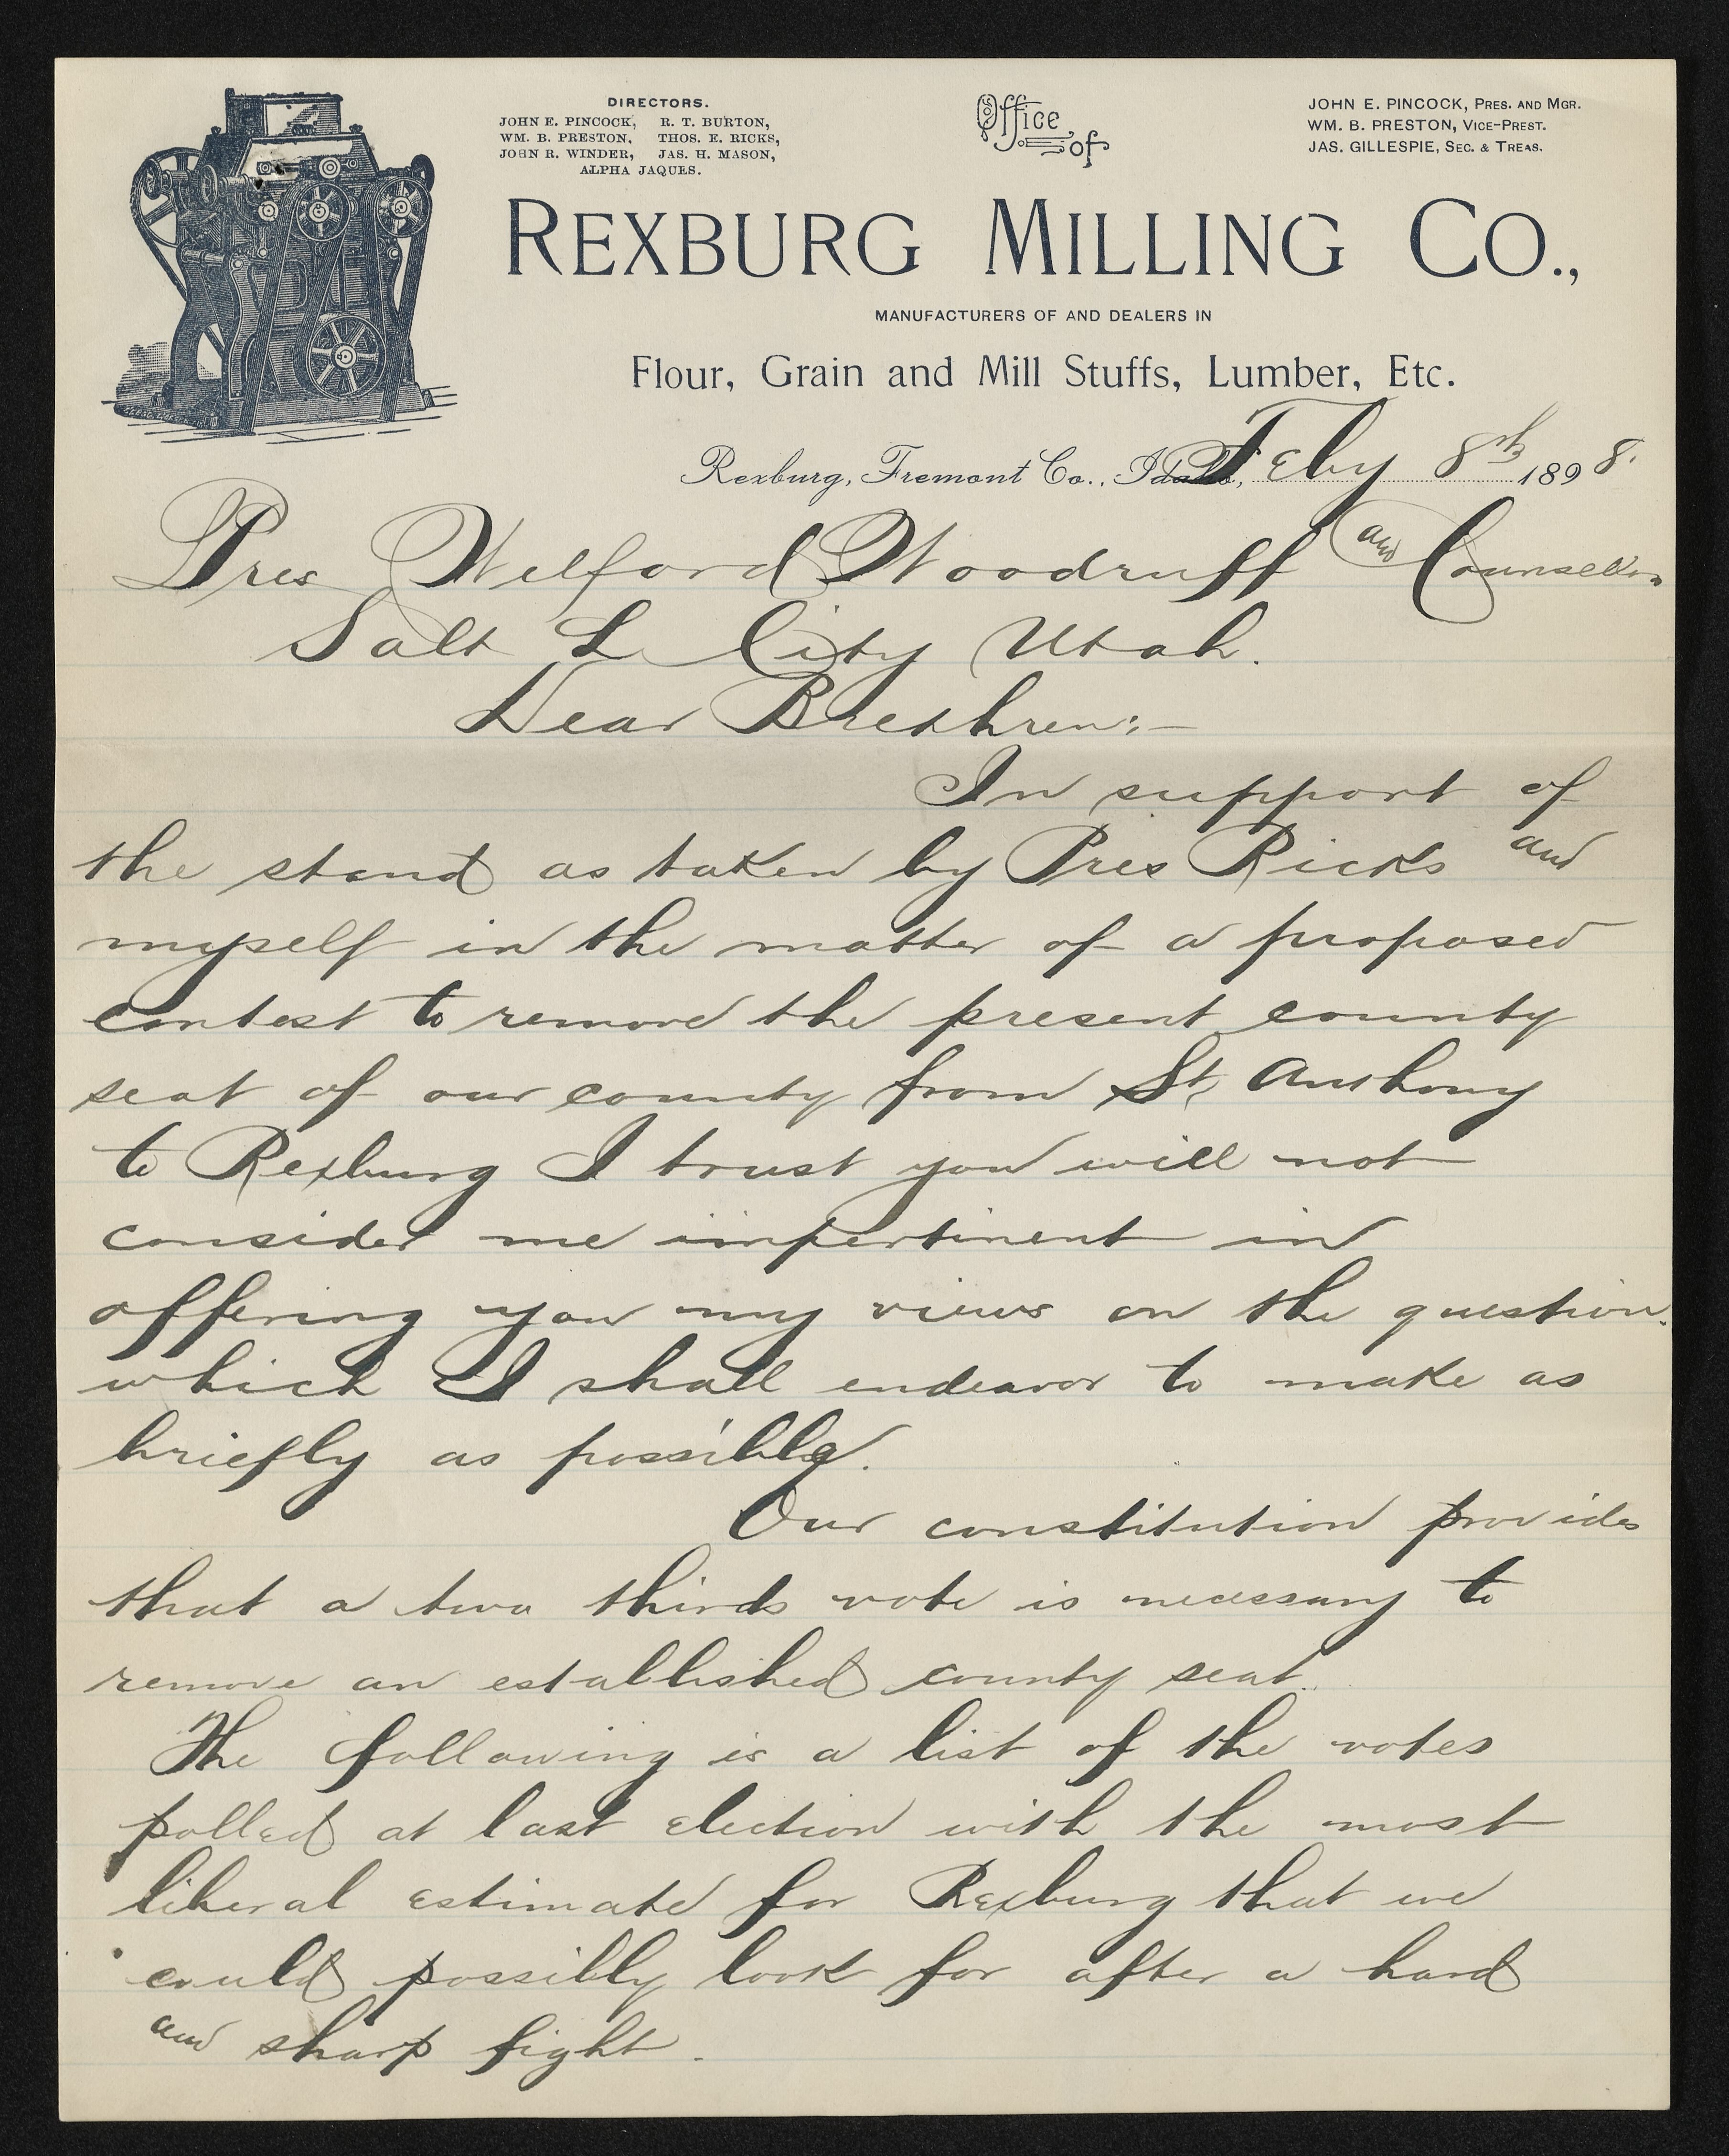 DIRECTORS.
JOHN E. PINCOCK, R. T. BURTON,
WM. B. PRESTON, THOS. E. RICKS,
JOHN R. WINDER, JAS. H. MASON,
ALPHA JAQUES.
Office of
JOHN E. PINCOCK, PRES. AND MGR.
WM. B. PRESTON, VICE-PREST.
JAS. GILLESPIE, SEC. & TREAS.
REXBURG MILLING CO.,
MANUFACTURERS OF AND DEALERS IN
Flour, Grain and Mill Stuffs, Lumber, Etc.
Rexburg, Fremont Co., Idaho, Feby 8th 1898.
Pres Welford Woodruff and Counselors
Salt L City Utah.
Dear Brethren:—
In support of
the stand as taken by Pres Ricks and
myself in the matter of a proposed
contest to remove the present county
seat of our county from St. Anthony
to Rexburg I trust you will not
consider me impertinent in
offering you my views on the question.
which I shall endeavor to make as
briefly as possible.
Our constitution provides
that a two thirds vote is necessary to
remove an established county seat.
The following is a list of the votes
polled at last election with the most
liberal estimate for Rexburg that we
could possibly look for after a hard
and sharp fight.